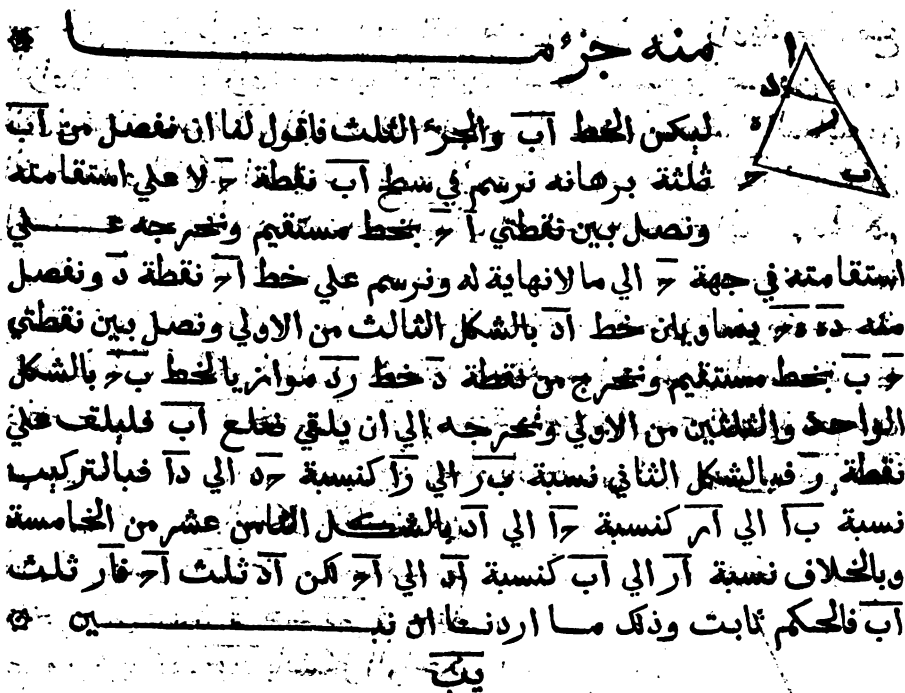 منه جزءما
ا د ه ر ب ح
ليكن الخط اب والجزء الثلث فاقول لنا ان نفصل من اب
ثلثه برهانه نرسم في سطح اب نقطة ح لا علي استقامته
ونصل بين نقطتي ا ح بخط مستقيم ونخرجه علي
استقامته في جهة ح الي ما لا نهاية له ونرسم علي خط اح نقطة د ونفصل
منه ده هح يساويان خط اد بالشكل الثالث من الاولي ونصل بين نقطتي
ح ب بخط مستقيم ونخرج من نقطة د خط رد موازيا لخط بح بالشكل
الواحد والثلثين من الاولي ونخرجه الي ان يلقي ضلع اب فليلقه علي
نقطة ر فبالشكل الثاني نسبة بر الي را كنسبة حد الي دا فبالتركيب
نسبة با الي ار كنسبة حا الي اد بالشكل الثامن عشر من الخامسة
وبالخلاف نسبة ار الي اب كنسبة اد الي اح لكن اد ثلث اح فار ثلث
اب فالحكم ثابت وذلك ما اردنا ان نبين
يب